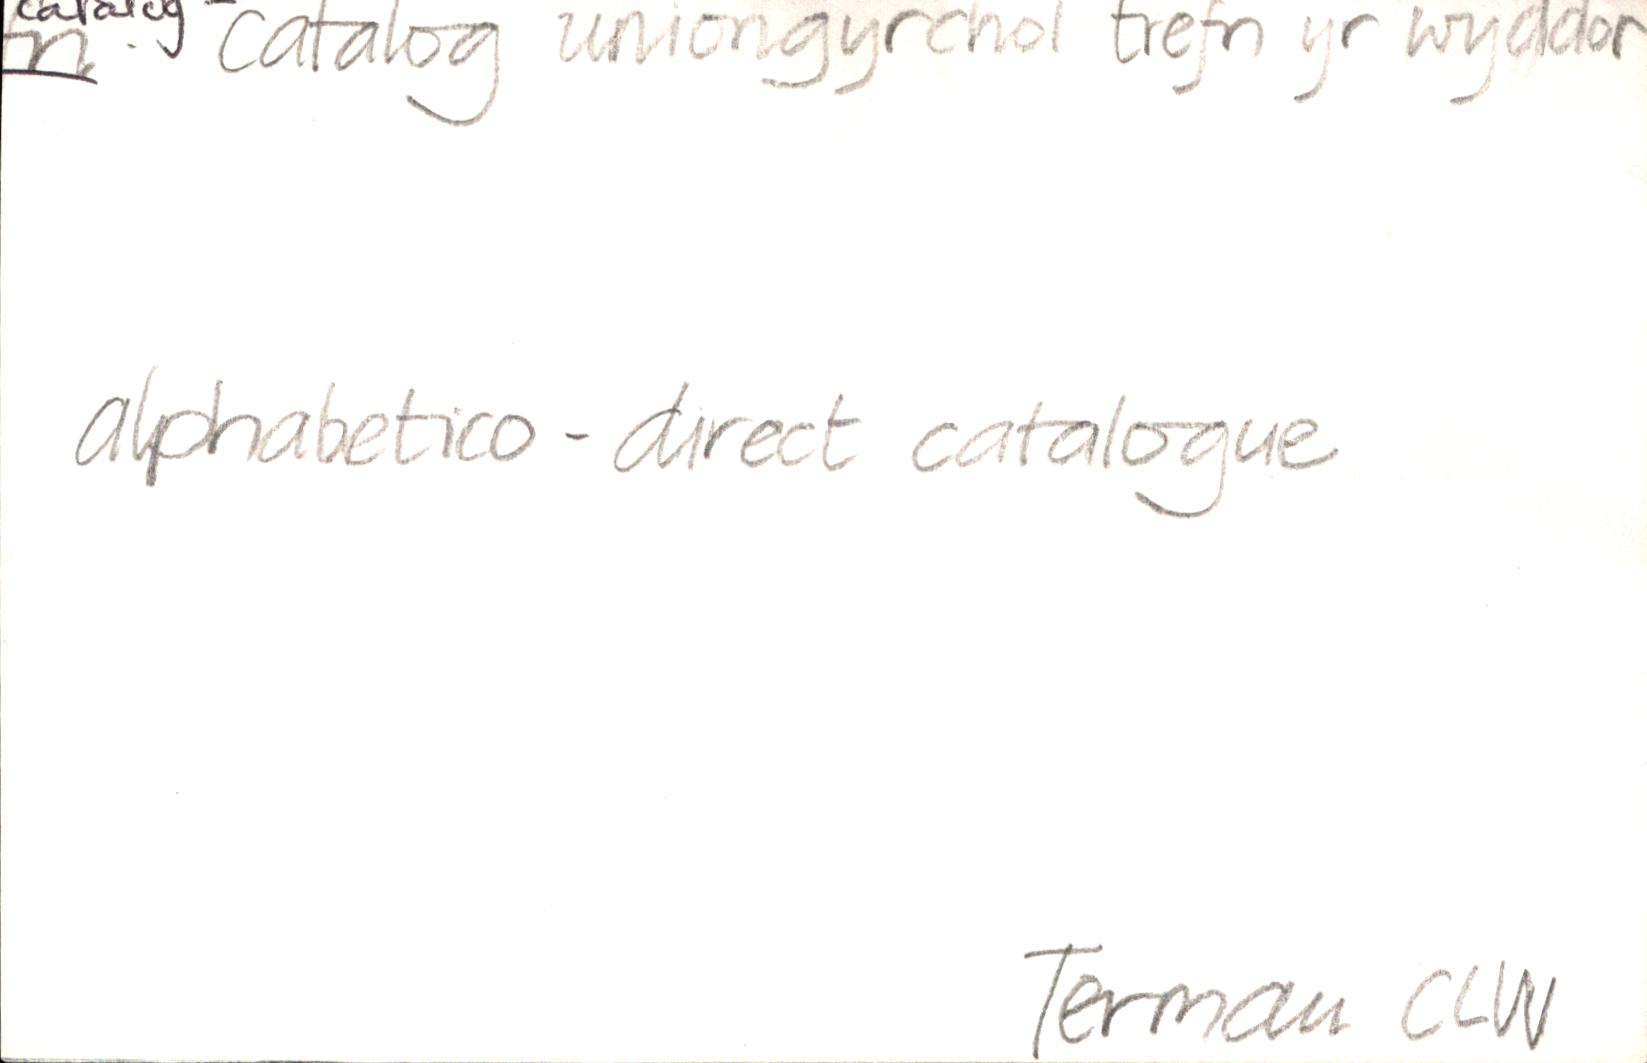 catalog -
n. catalog uniongyrchol trefn yr wyddor
alphabetico - direct catalogue
Termau CLW